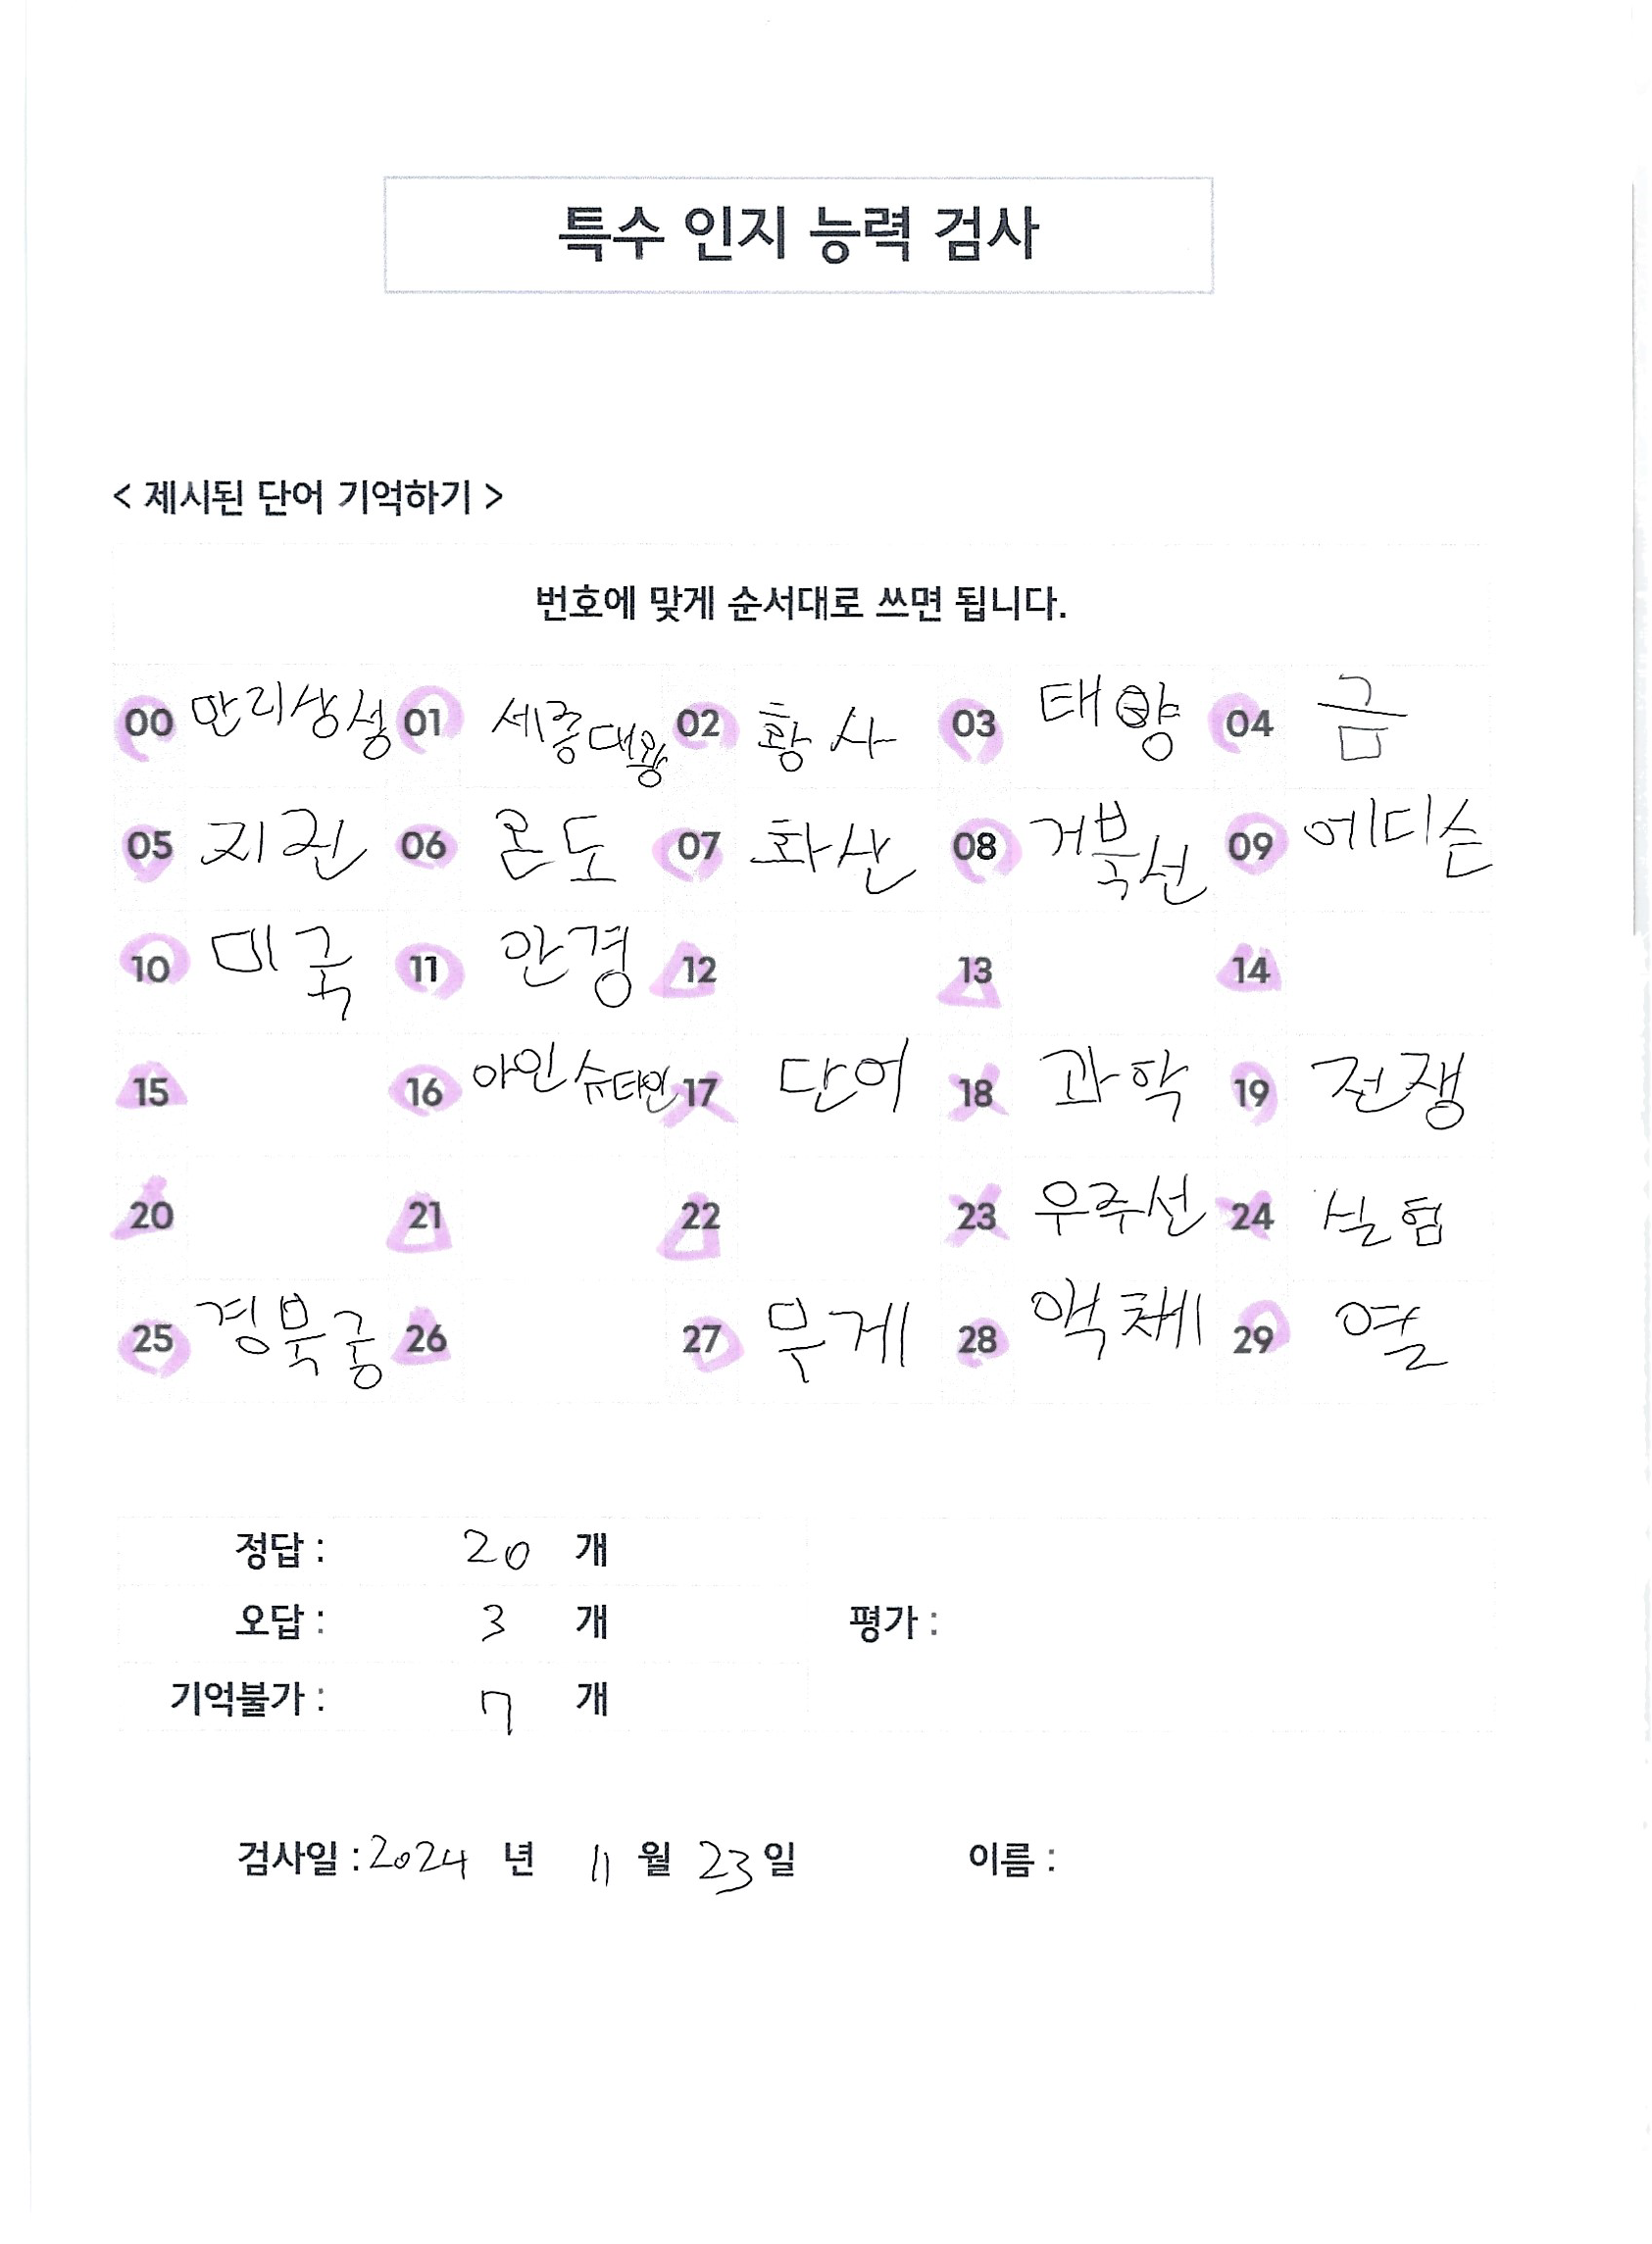 특수 인지 능력 검사
< 제시된 단어 기억하기 >
번호에 맞게 순서대로 쓰면 됩니다.
00 만리장성 01 세종대왕 02 황사 03 태양 04 금
05 지진 06 온도 07 화산 08 거북선 09 에디슨
10 미국 11 안경 12 13 14
15 16 아인슈타인 17 단어 18 과학 19 전쟁
20 21 22 23 우주선 24 실험
25 경복궁 26 27 무게 28 액체 29 열
정답 : 20 개
오답 : 3 개
평가 :
기억불가 : 7 개
검사일 : 2024 년 11 월 23 일 이름 :